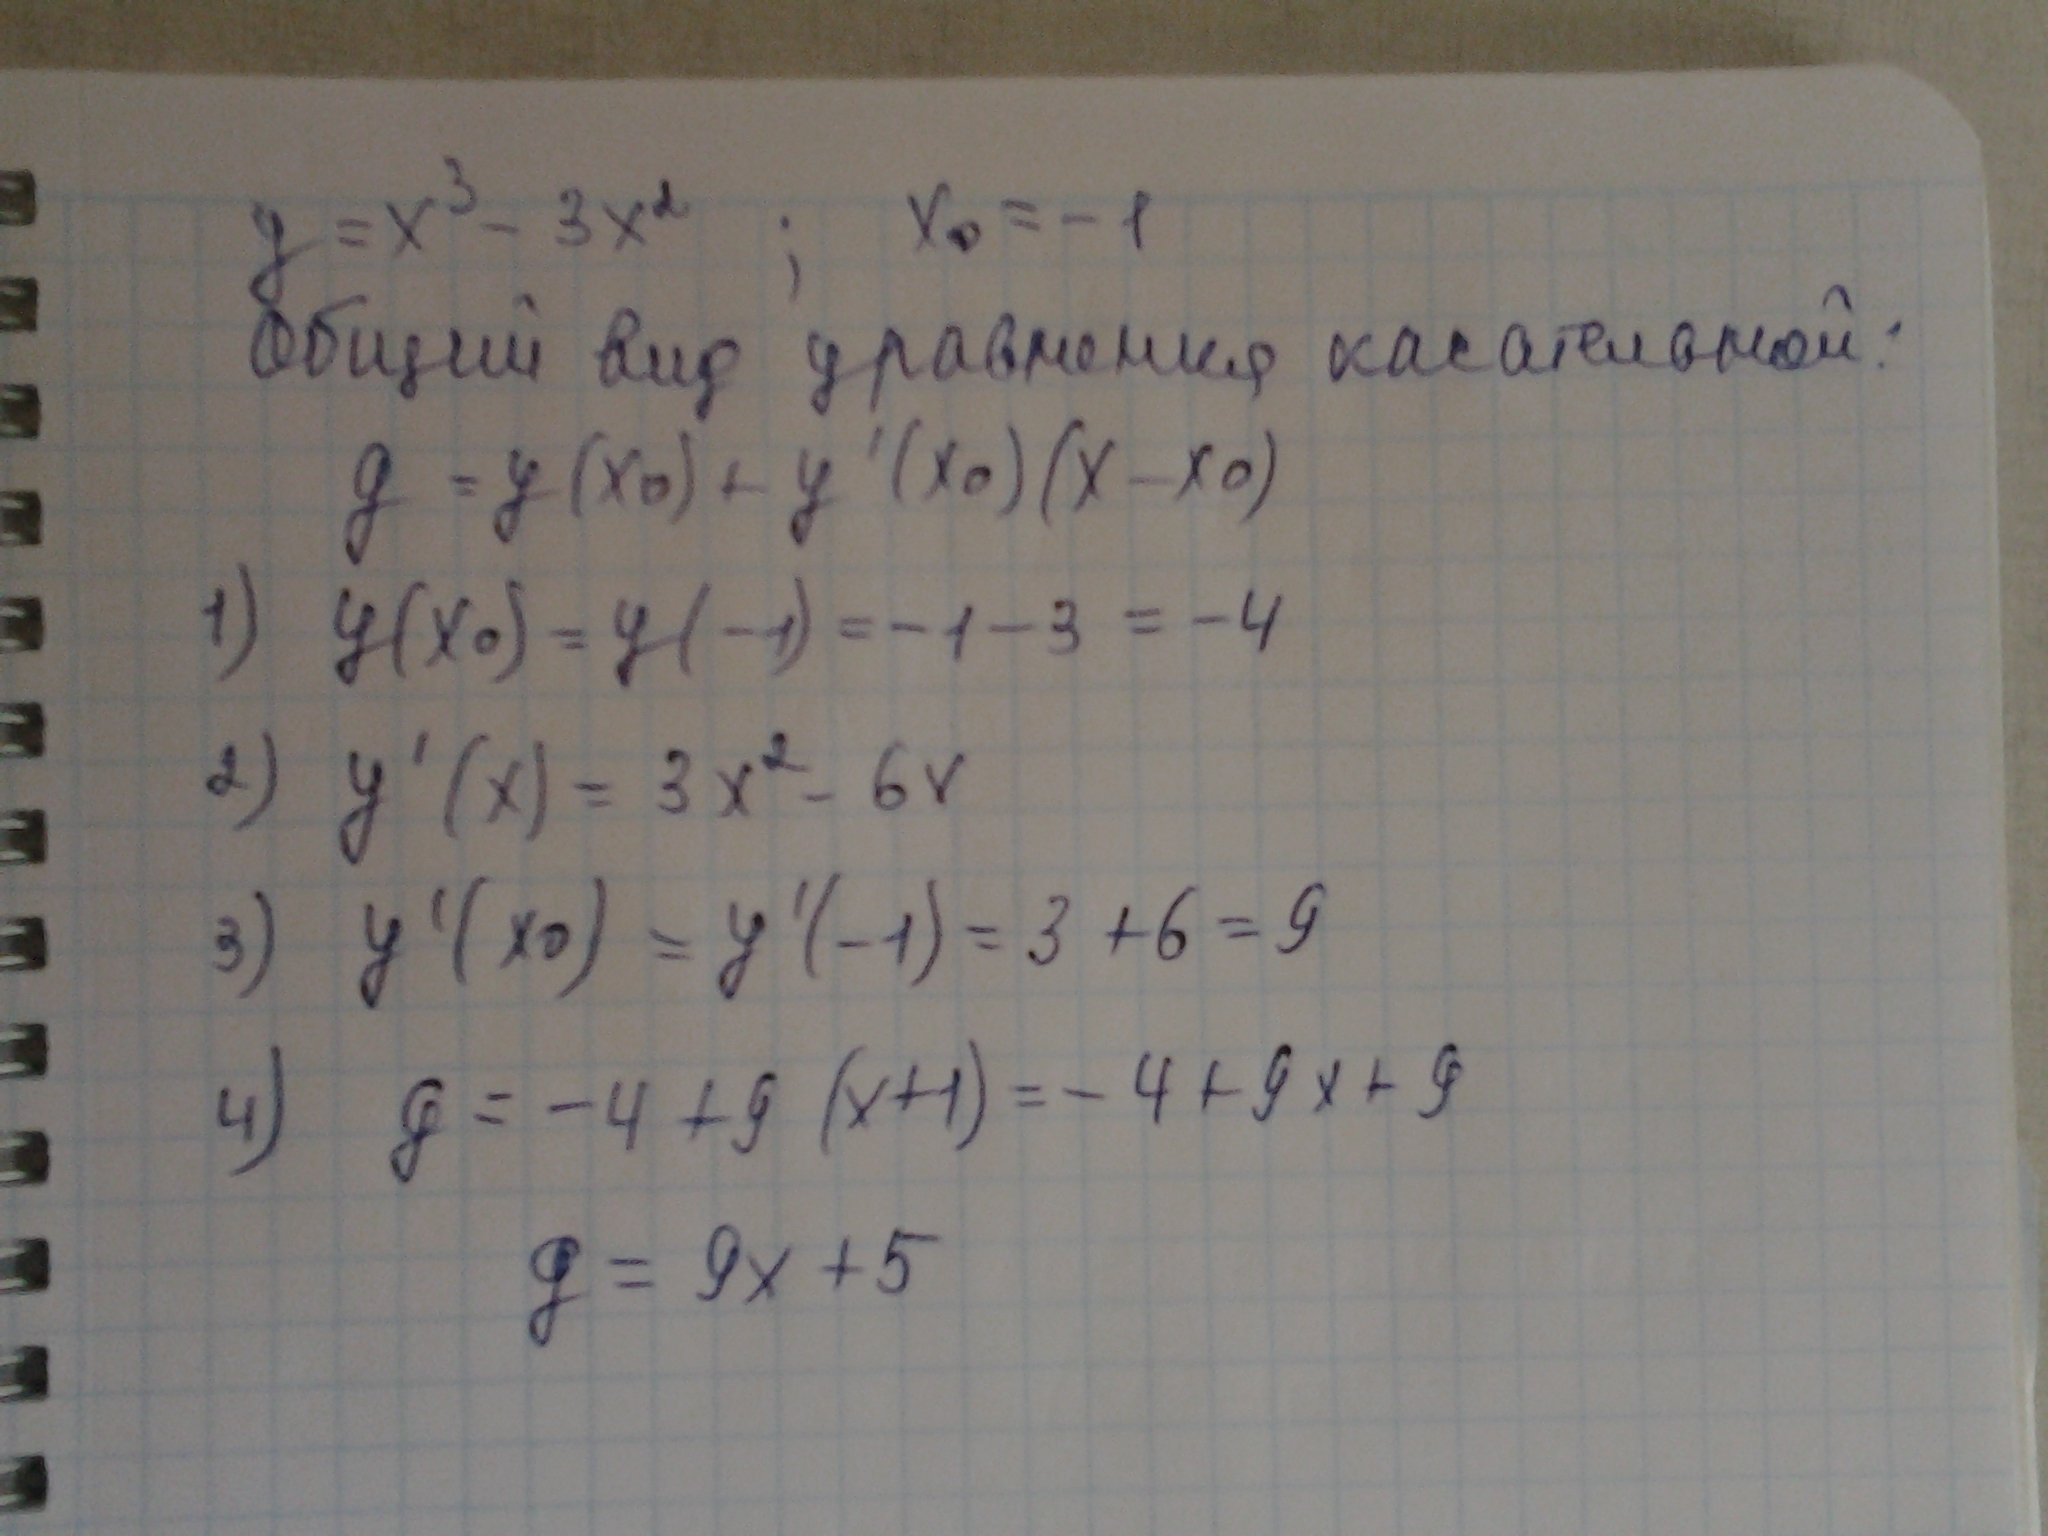 y = x³ - 3x² ; x₀ = -1
Общий вид уравнения касательной:
y = y(x₀) + y'(x₀)(x - x₀)
1) y(x₀) = y(-1) = -1 - 3 = -4
2) y'(x) = 3x² - 6x
3) y'(x₀) = y'(-1) = 3 + 6 = 9
4) y = -4 + 9 (x+1) = -4 + 9x + 9
y = 9x + 5